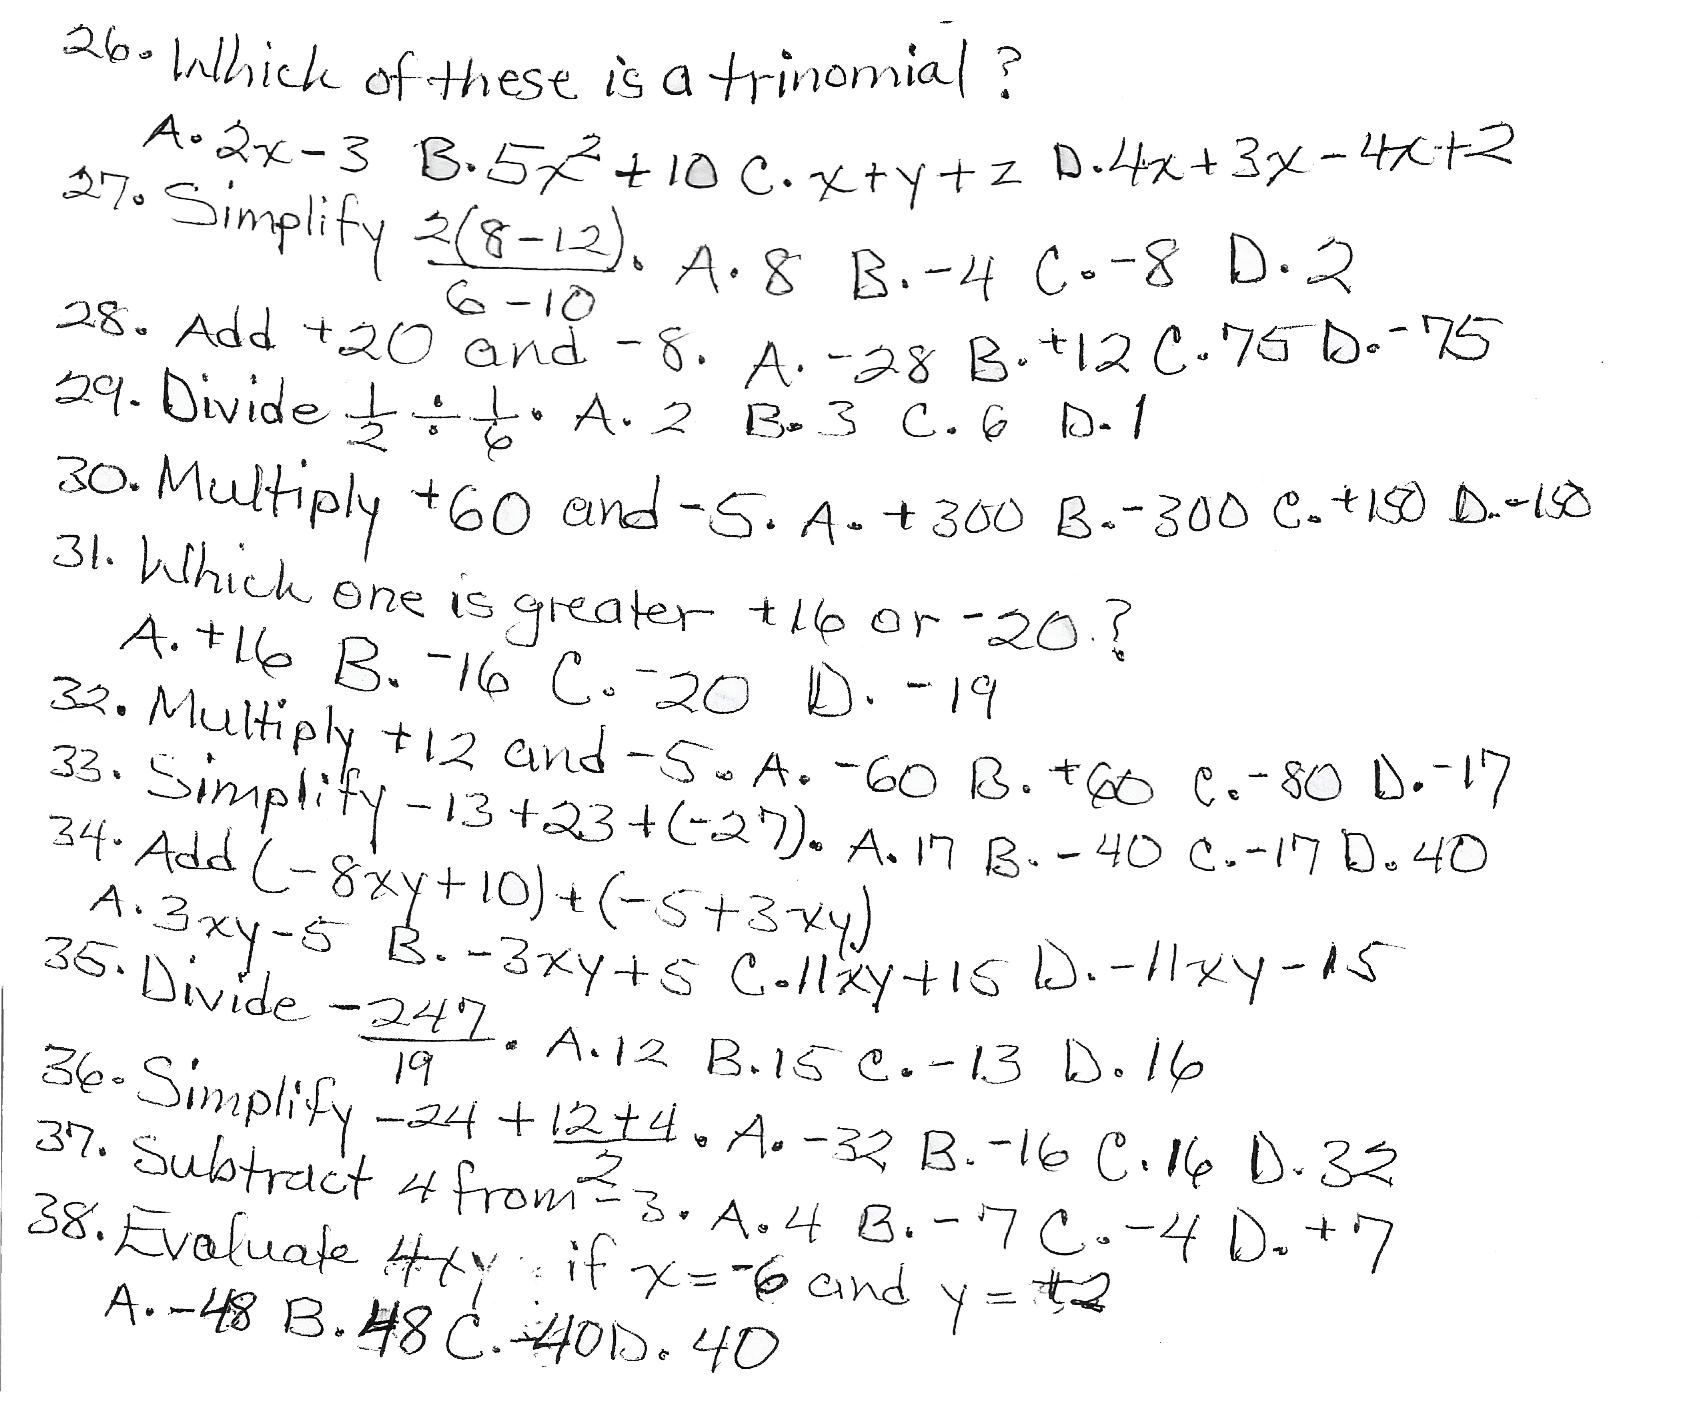 26. Which of these is a trinomial?
A. 2x-3 B. 5x²+10 C. x+y+z D. 4x+3x-4x+2
27. Simplify 2(8-12)/6-10. A. 8 B. -4 C. -8 D. 2
28. Add +20 and -8. A. -28 B. +12 C. 75 D. -75
29. Divide 1/2 ÷ 1/6. A. 2 B. 3 C. 6 D. 1
30. Multiply +60 and -5. A. +300 B. -300 C. +150 D. -150
31. Which one is greater +16 or -20.?
A. +16 B. -16 C. -20 D. -19
32. Multiply +12 and -5. A. -60 B. +60 C. -80 D. -17
33. Simplify -13+23+(-27). A. 17 B. -40 C. -17 D. 40
34. Add (-8xy+10)+(-5+3xy)
A. 3xy-5 B. -3xy+5 C. 11xy+15 D. -11xy-15
35. Divide -247/19. A. 12 B. 15 C. -13 D. 16
36. Simplify -24 + 12+4/2. A. -32 B. -16 C. 16 D. 32
37. Subtract 4 from -3. A. 4 B. -7 C. -4 D. +7
38. Evaluate 4xy if x=-6 and y=+2
A. -48 B. 48 C. -40 D. 40